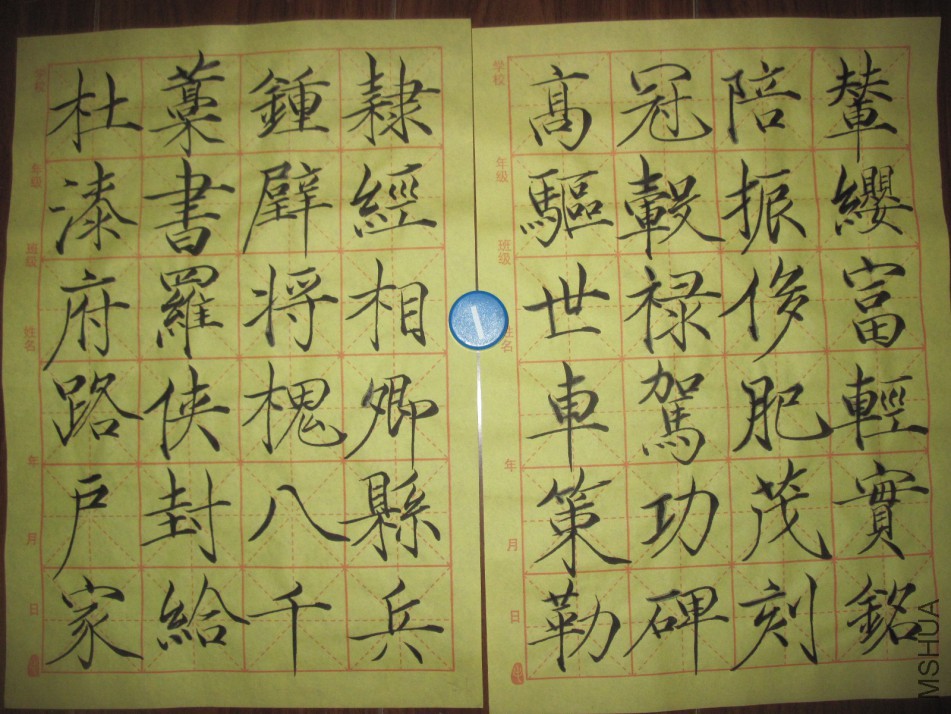 杜藁鍾隸
漆書壁經
府羅将相
路俠槐卿
戶封八縣
家給千兵
髙冠陪輦
驅轂振纓
世禄侈富
車駕肥輕
策功茂實
勒碑刻銘
学校
年级
班级
姓名
年
月
日
学校
年级
班级
姓名
年
月
日
MSHUA